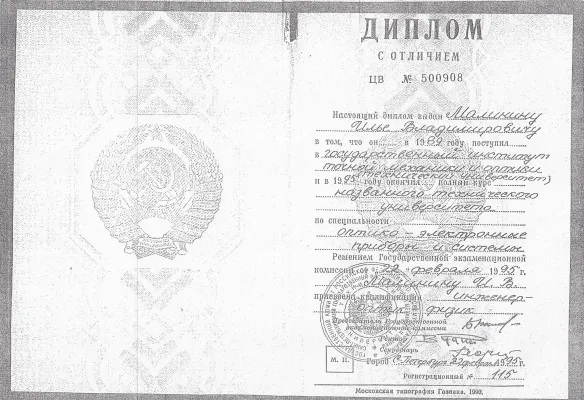 ДИПЛОМ
С ОТЛИЧИЕМ
ЦВ № 500908
Настоящий диплом выдан Малинину
Илье Владимировичу
в том, что он в 1989 году поступил
в государственный институт
точной механики и оптики
(технический университет)
и в 19 году окончил полный курс
названного технического
университета
по специальности
оптико-электронные
приборы и системы
Решением Государственной экзаменационной
комиссии 22 февраля 1995 г.
Малинину И. В.
присвоена квалификация инженер-
физик
Председатель Государственной
экзаменационной комиссии
Ректор
Секретарь
М. П. Город С.Петербург 22 февраля 1995 г.
Регистрационный № 115
Московская типография Гознака. 1990.